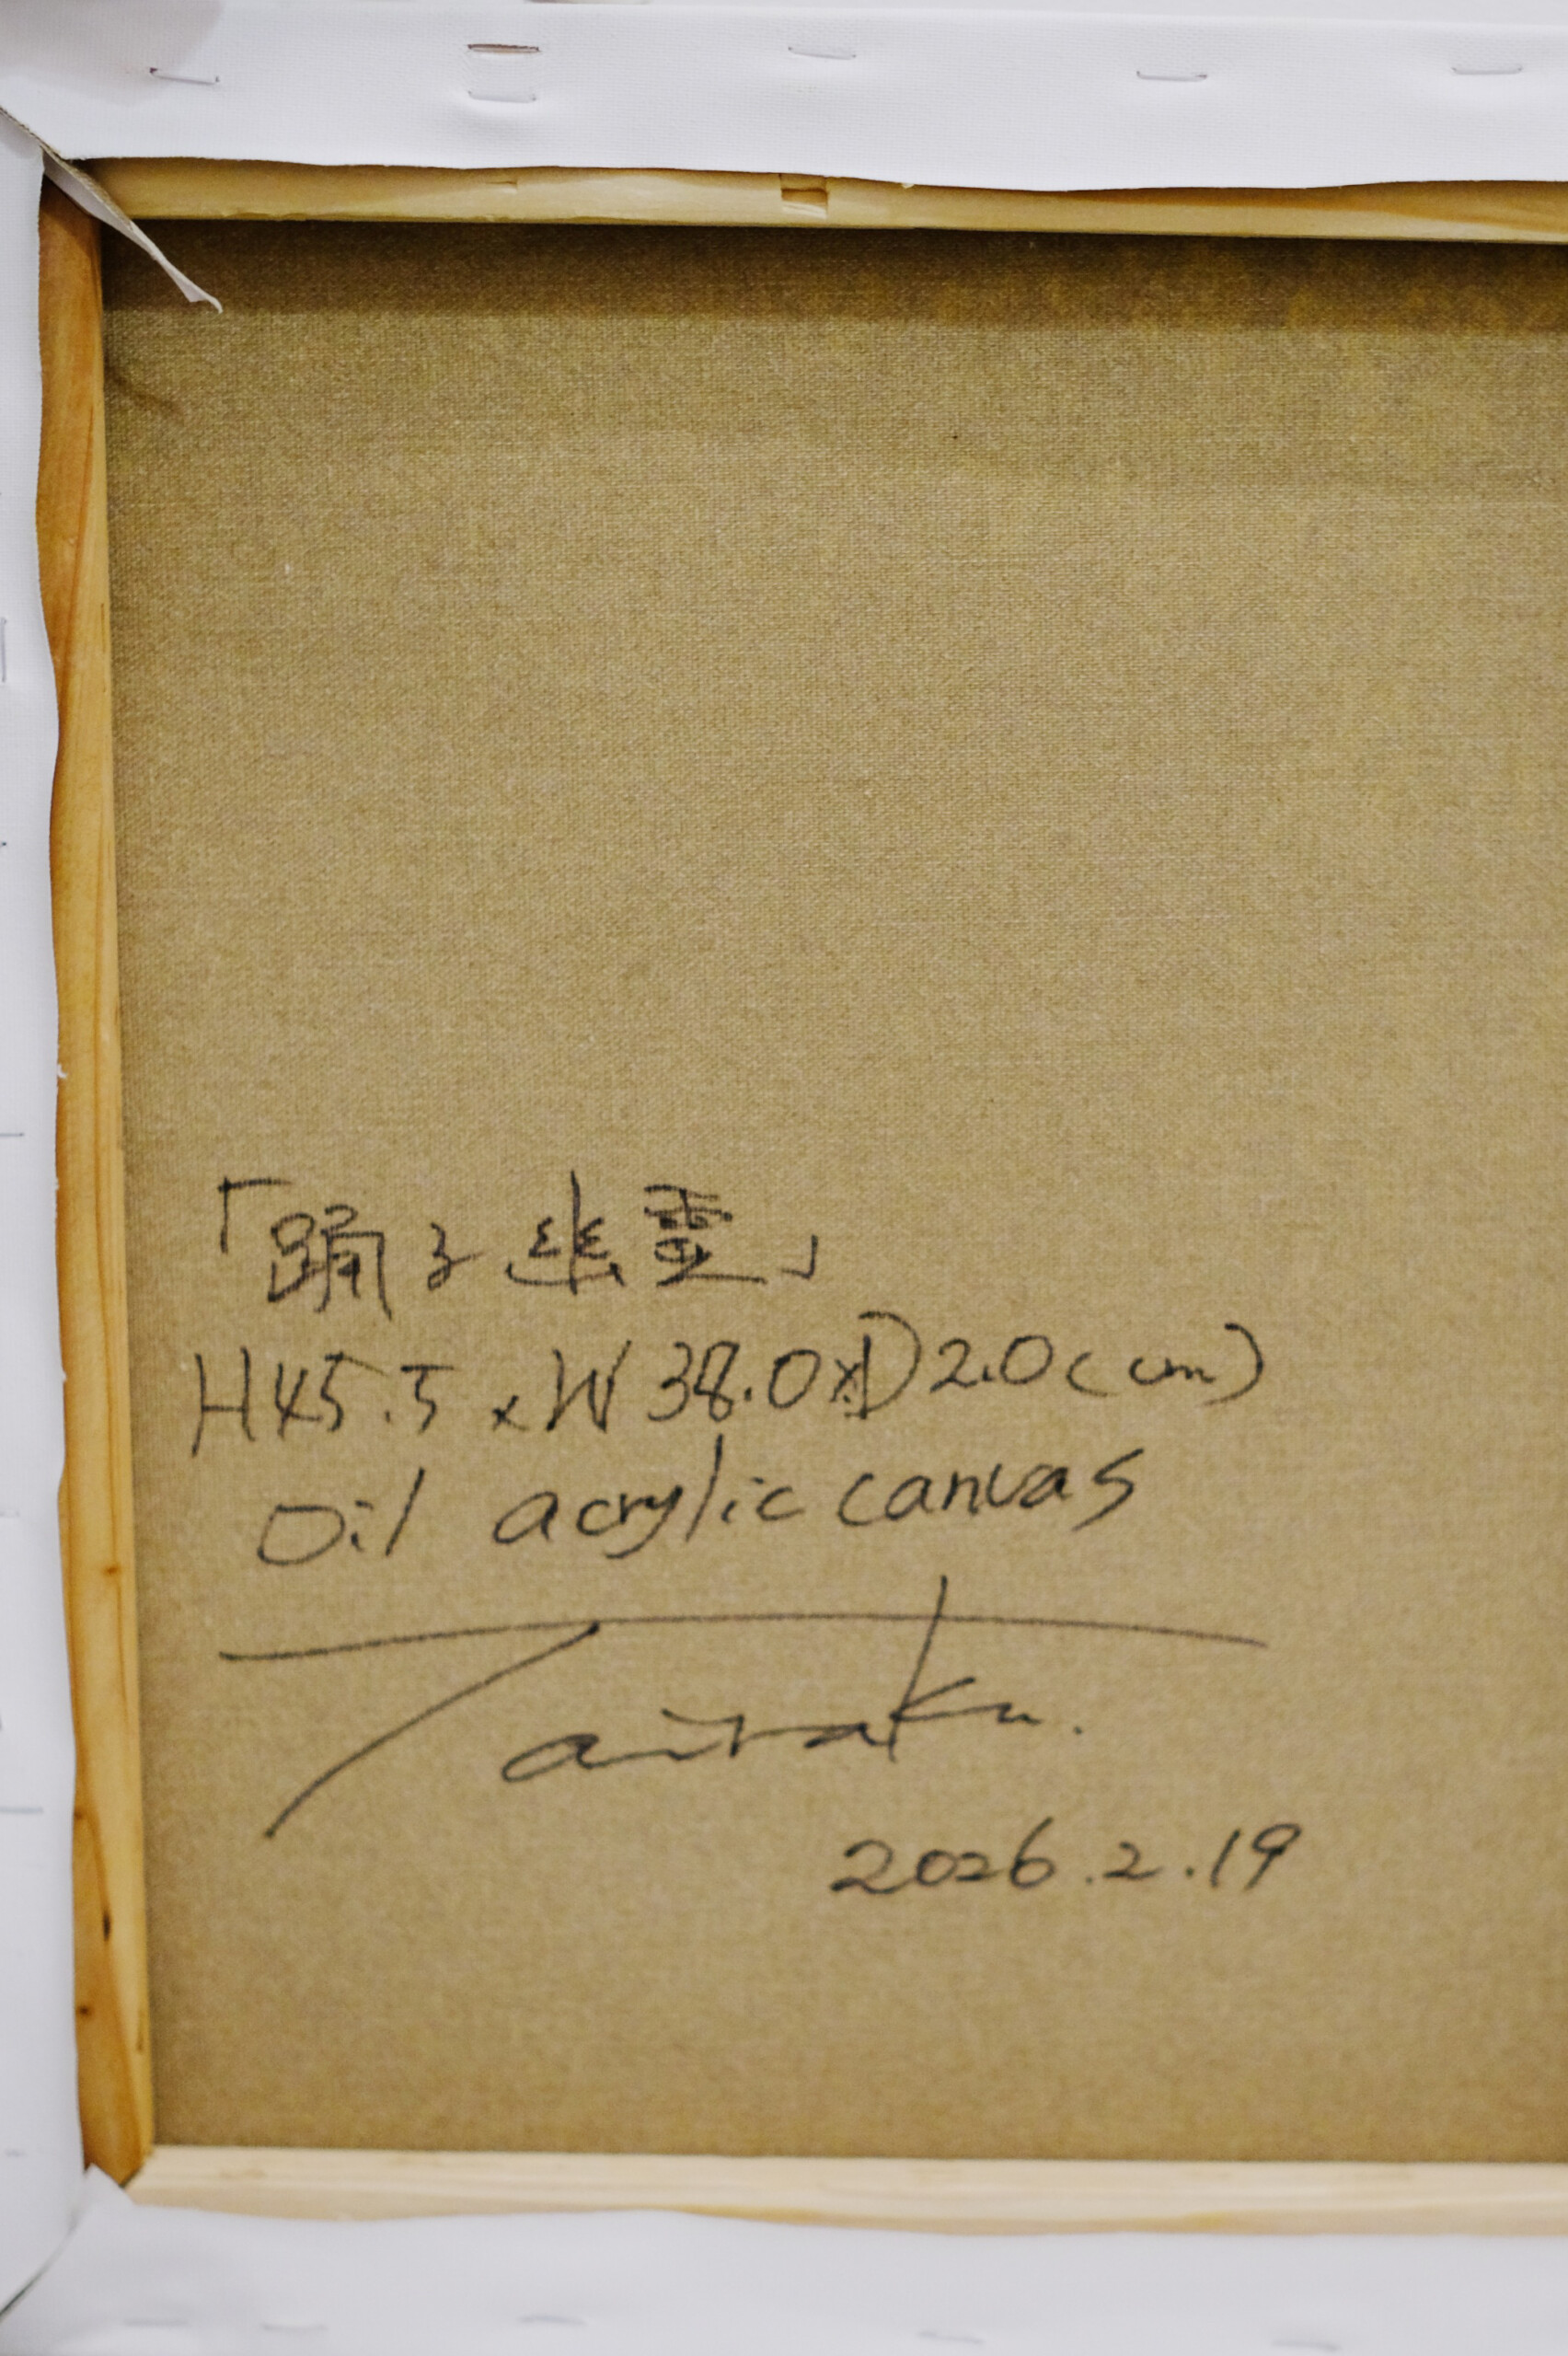 「踊る幽霊」
H45.5 x W38.0 x D2.0 (cm)
Oil acrylic canvas
Tairaku.
2026.2.19